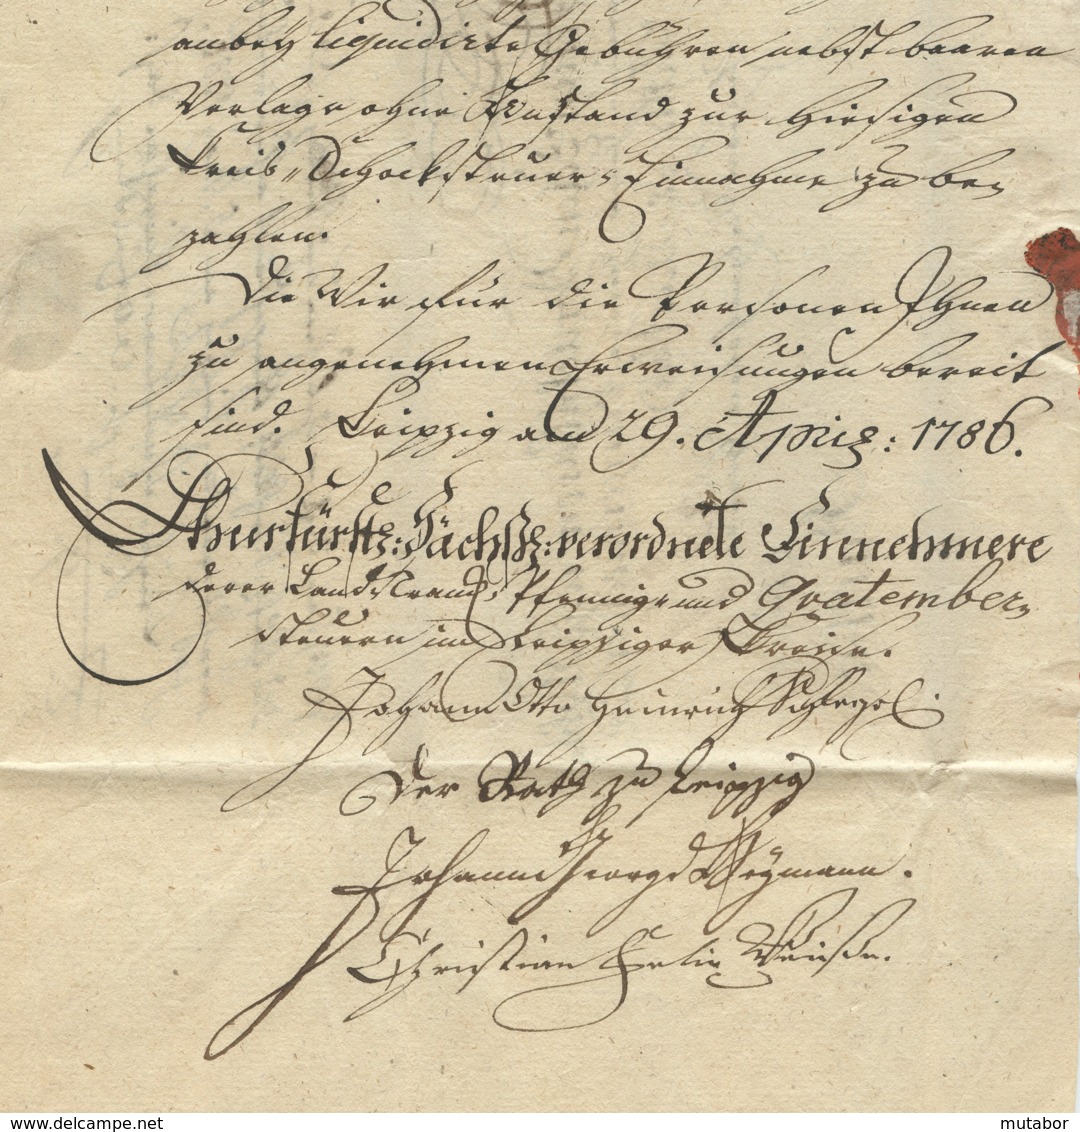 anbey liquidirte Gebühren nebst baaren
Verlage ohne Anstand zur hiesigen
Creis-Schocksteuer-Einnahme zu be-
zahlen.
Die Wir für die Personen Ihnen
zu angenehmen Erweisungen bereit
sind. Leipzig am 29. April: 1786.
Churfürstl: Sächsl: verordnete Einnehmere
derer Land, Tranck, Pfennig- und Qvatember-
steuern im Leipziger Creise.
Johann Otto Heinrich Schlegel
Der Rath zu Leipzig
Johann George Weymann.
Christian Felix Weiße.
www.delcampe.net
mutabor